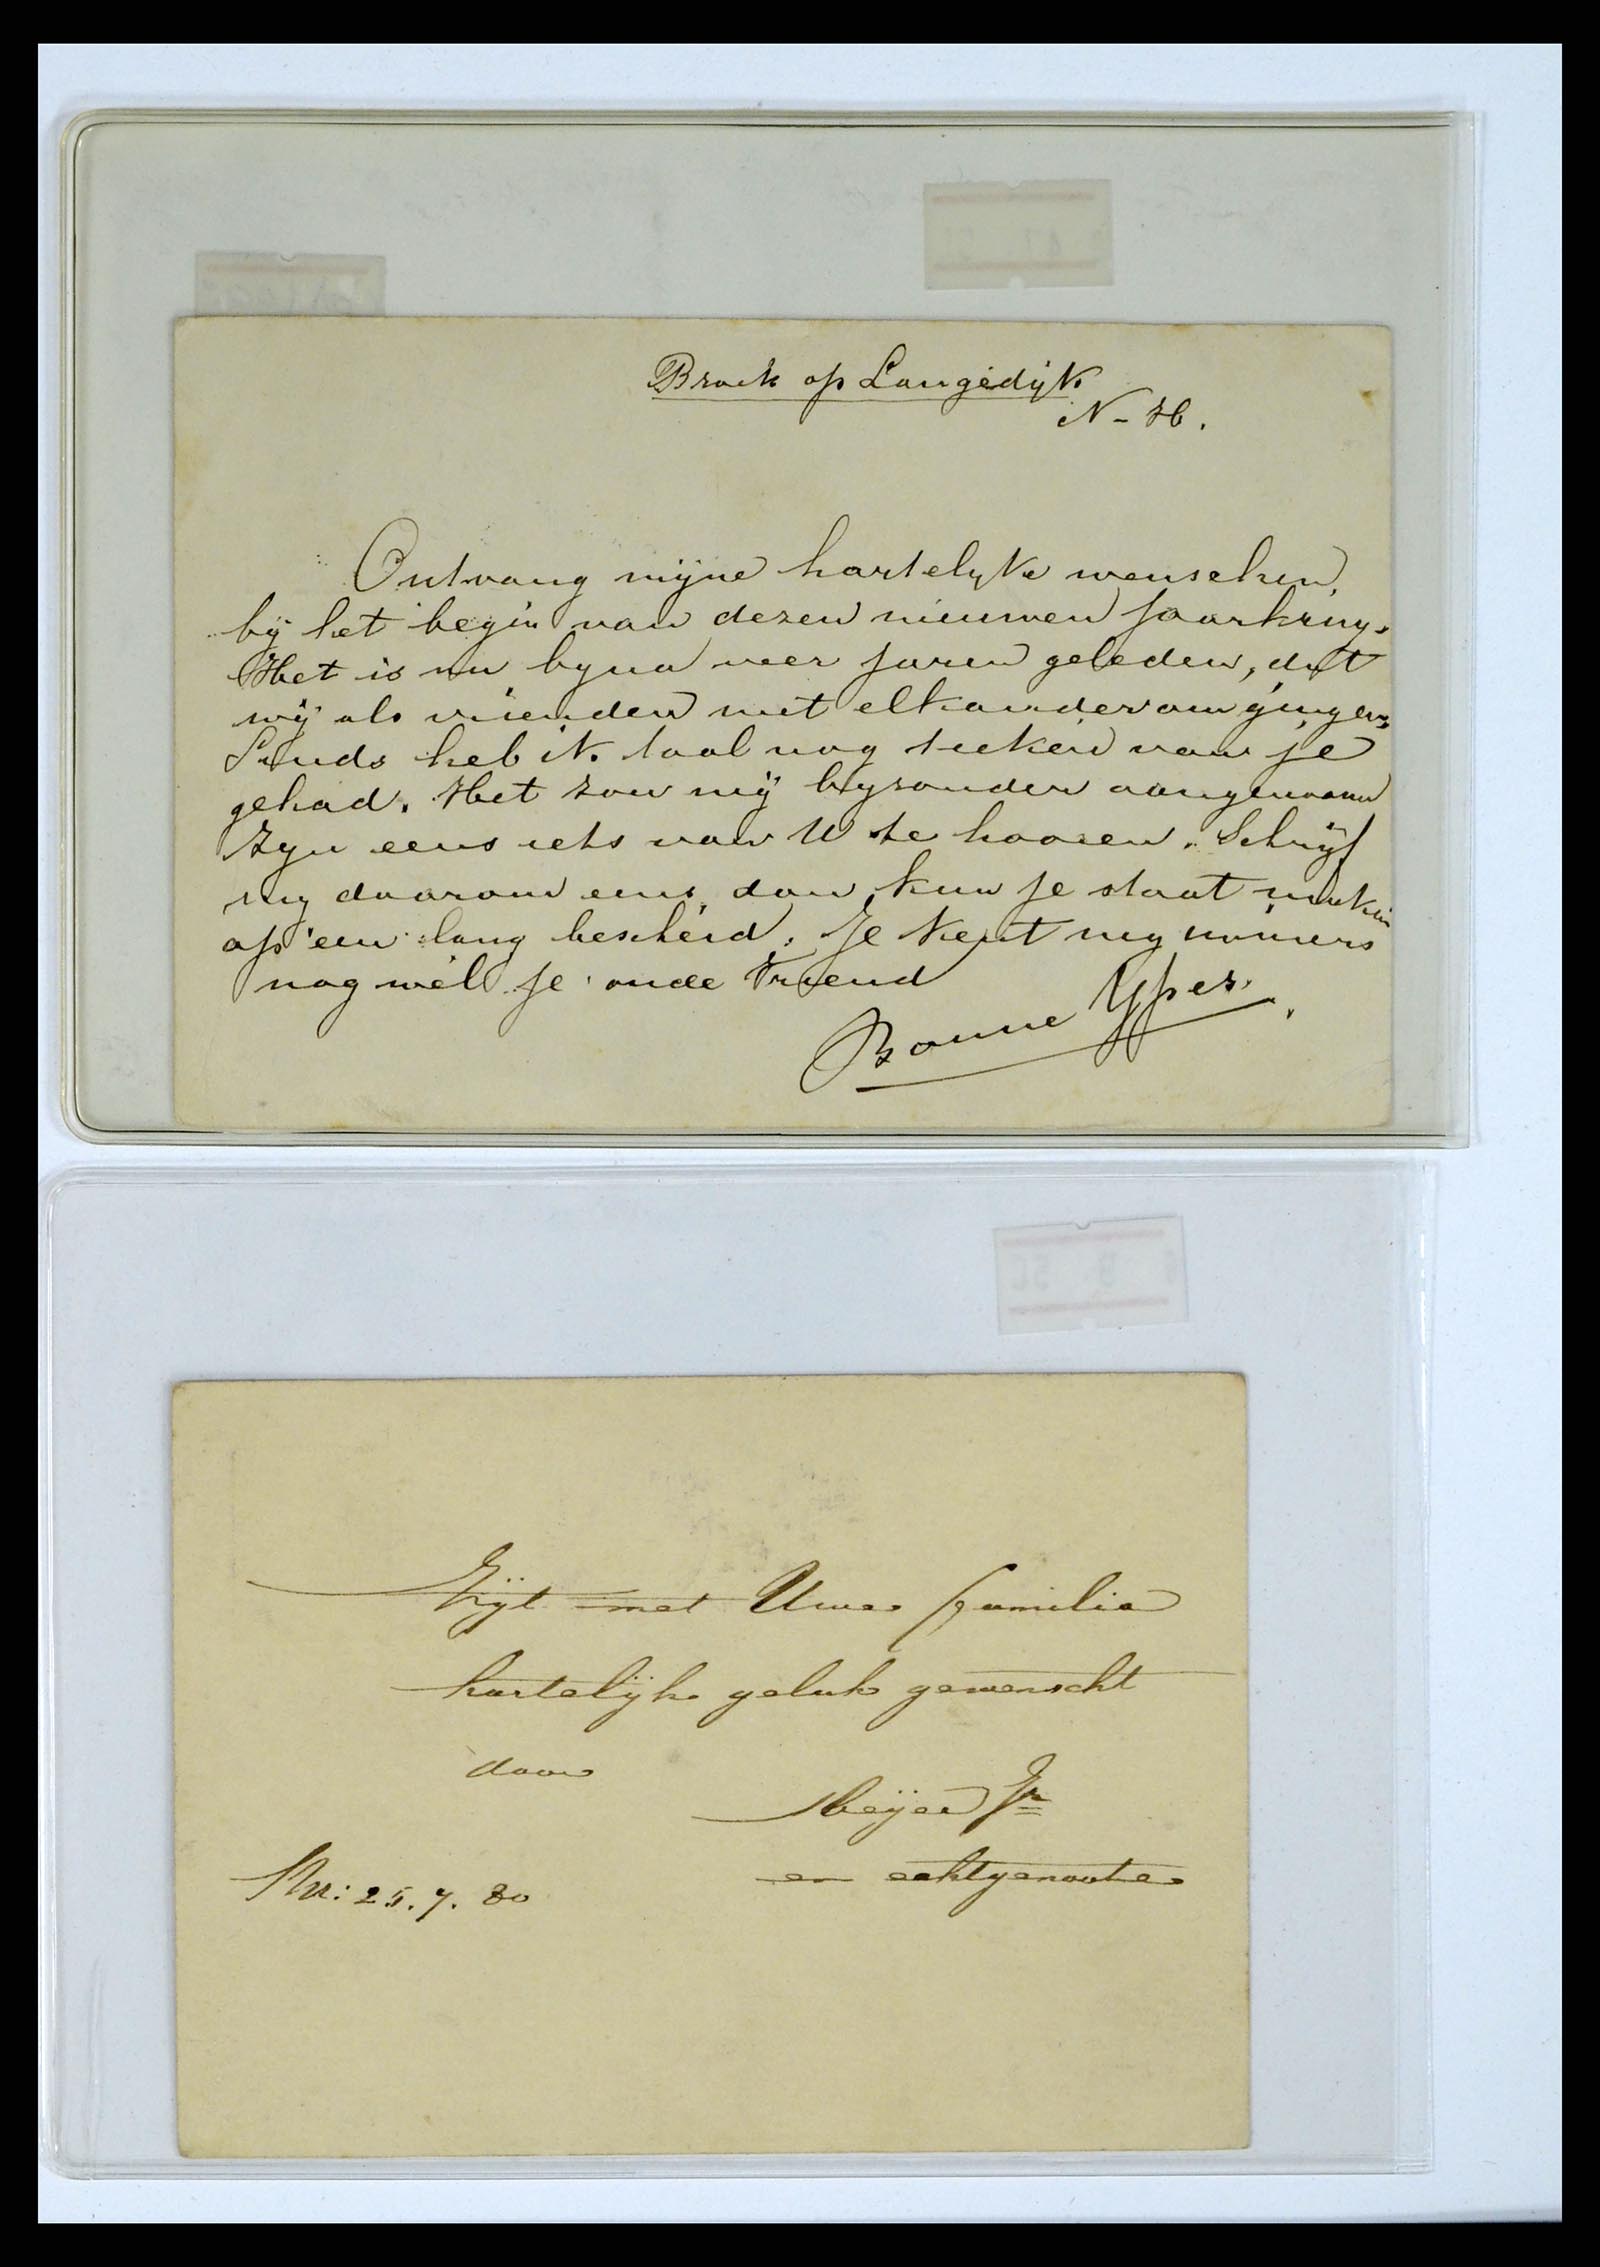 Broek op Langedijk
N-H.
Ontvang mijne hartelyke wenschen
bij het begin van dezen nieuwen jaarkring.
Het is nu byna veer jaren geleden, dat
wij als vrienden met elkander omgingen,
Sinds heb ik taal nog teeken van je
gehad. Het zou mij byzonder aangenaam
zyn eens iets van U te hooren. Schrijf
my daarom eens, dan kun je staat maken
op een lang bescheid. Je kent my immers
nog wel je oude Vriend
Bonne Ypes.
Zijt met Uwe familie
hartelijk geluk gewenscht
door
Meijer Jr
en echtgenoote
25.7.80